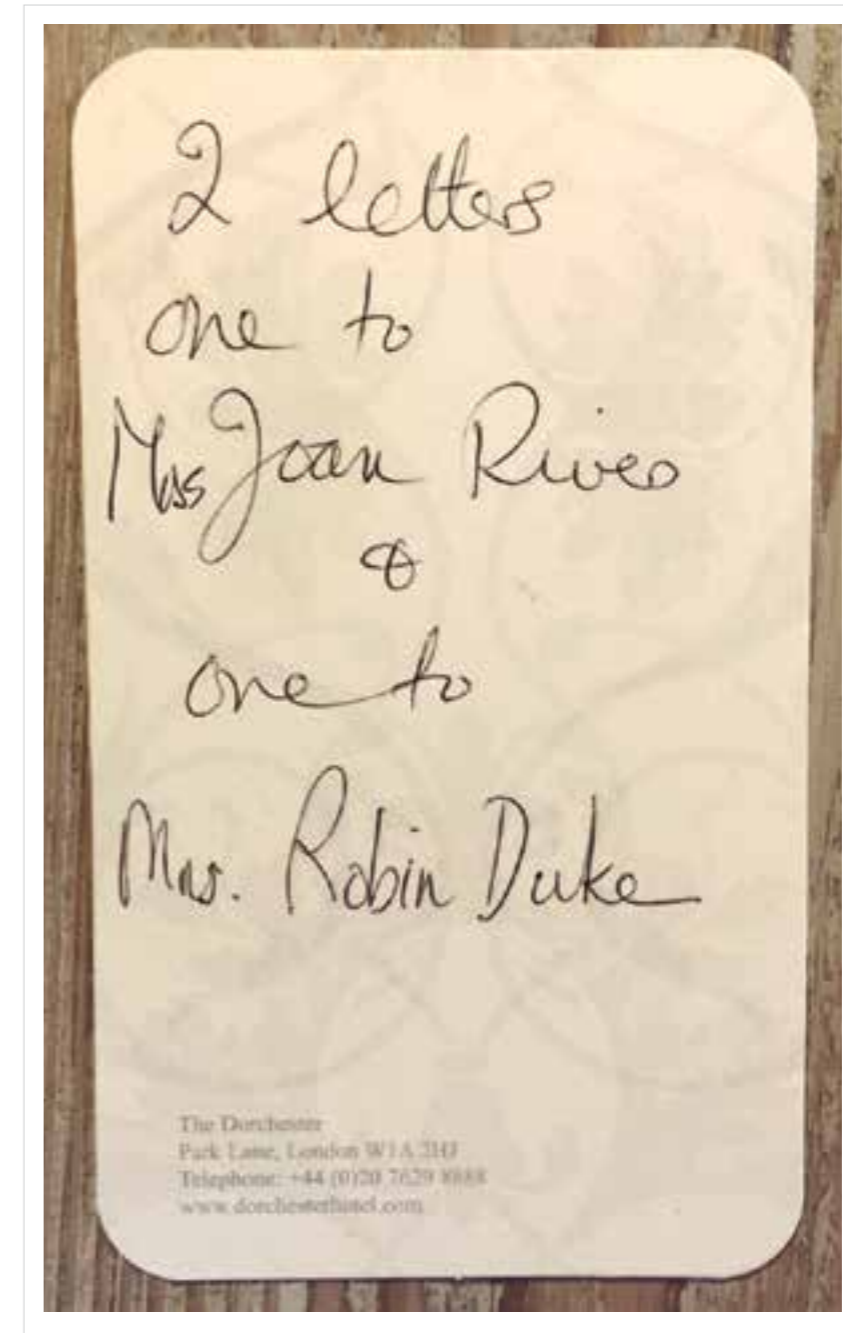 2 letters
one to
Miss Joan Rivers
&
one to
Mrs. Robin Duke
The Dorchester
Park Lane, London W1A 2HJ
Telephone: +44 (0)20 7629 8888
www.dorchesterhotel.com